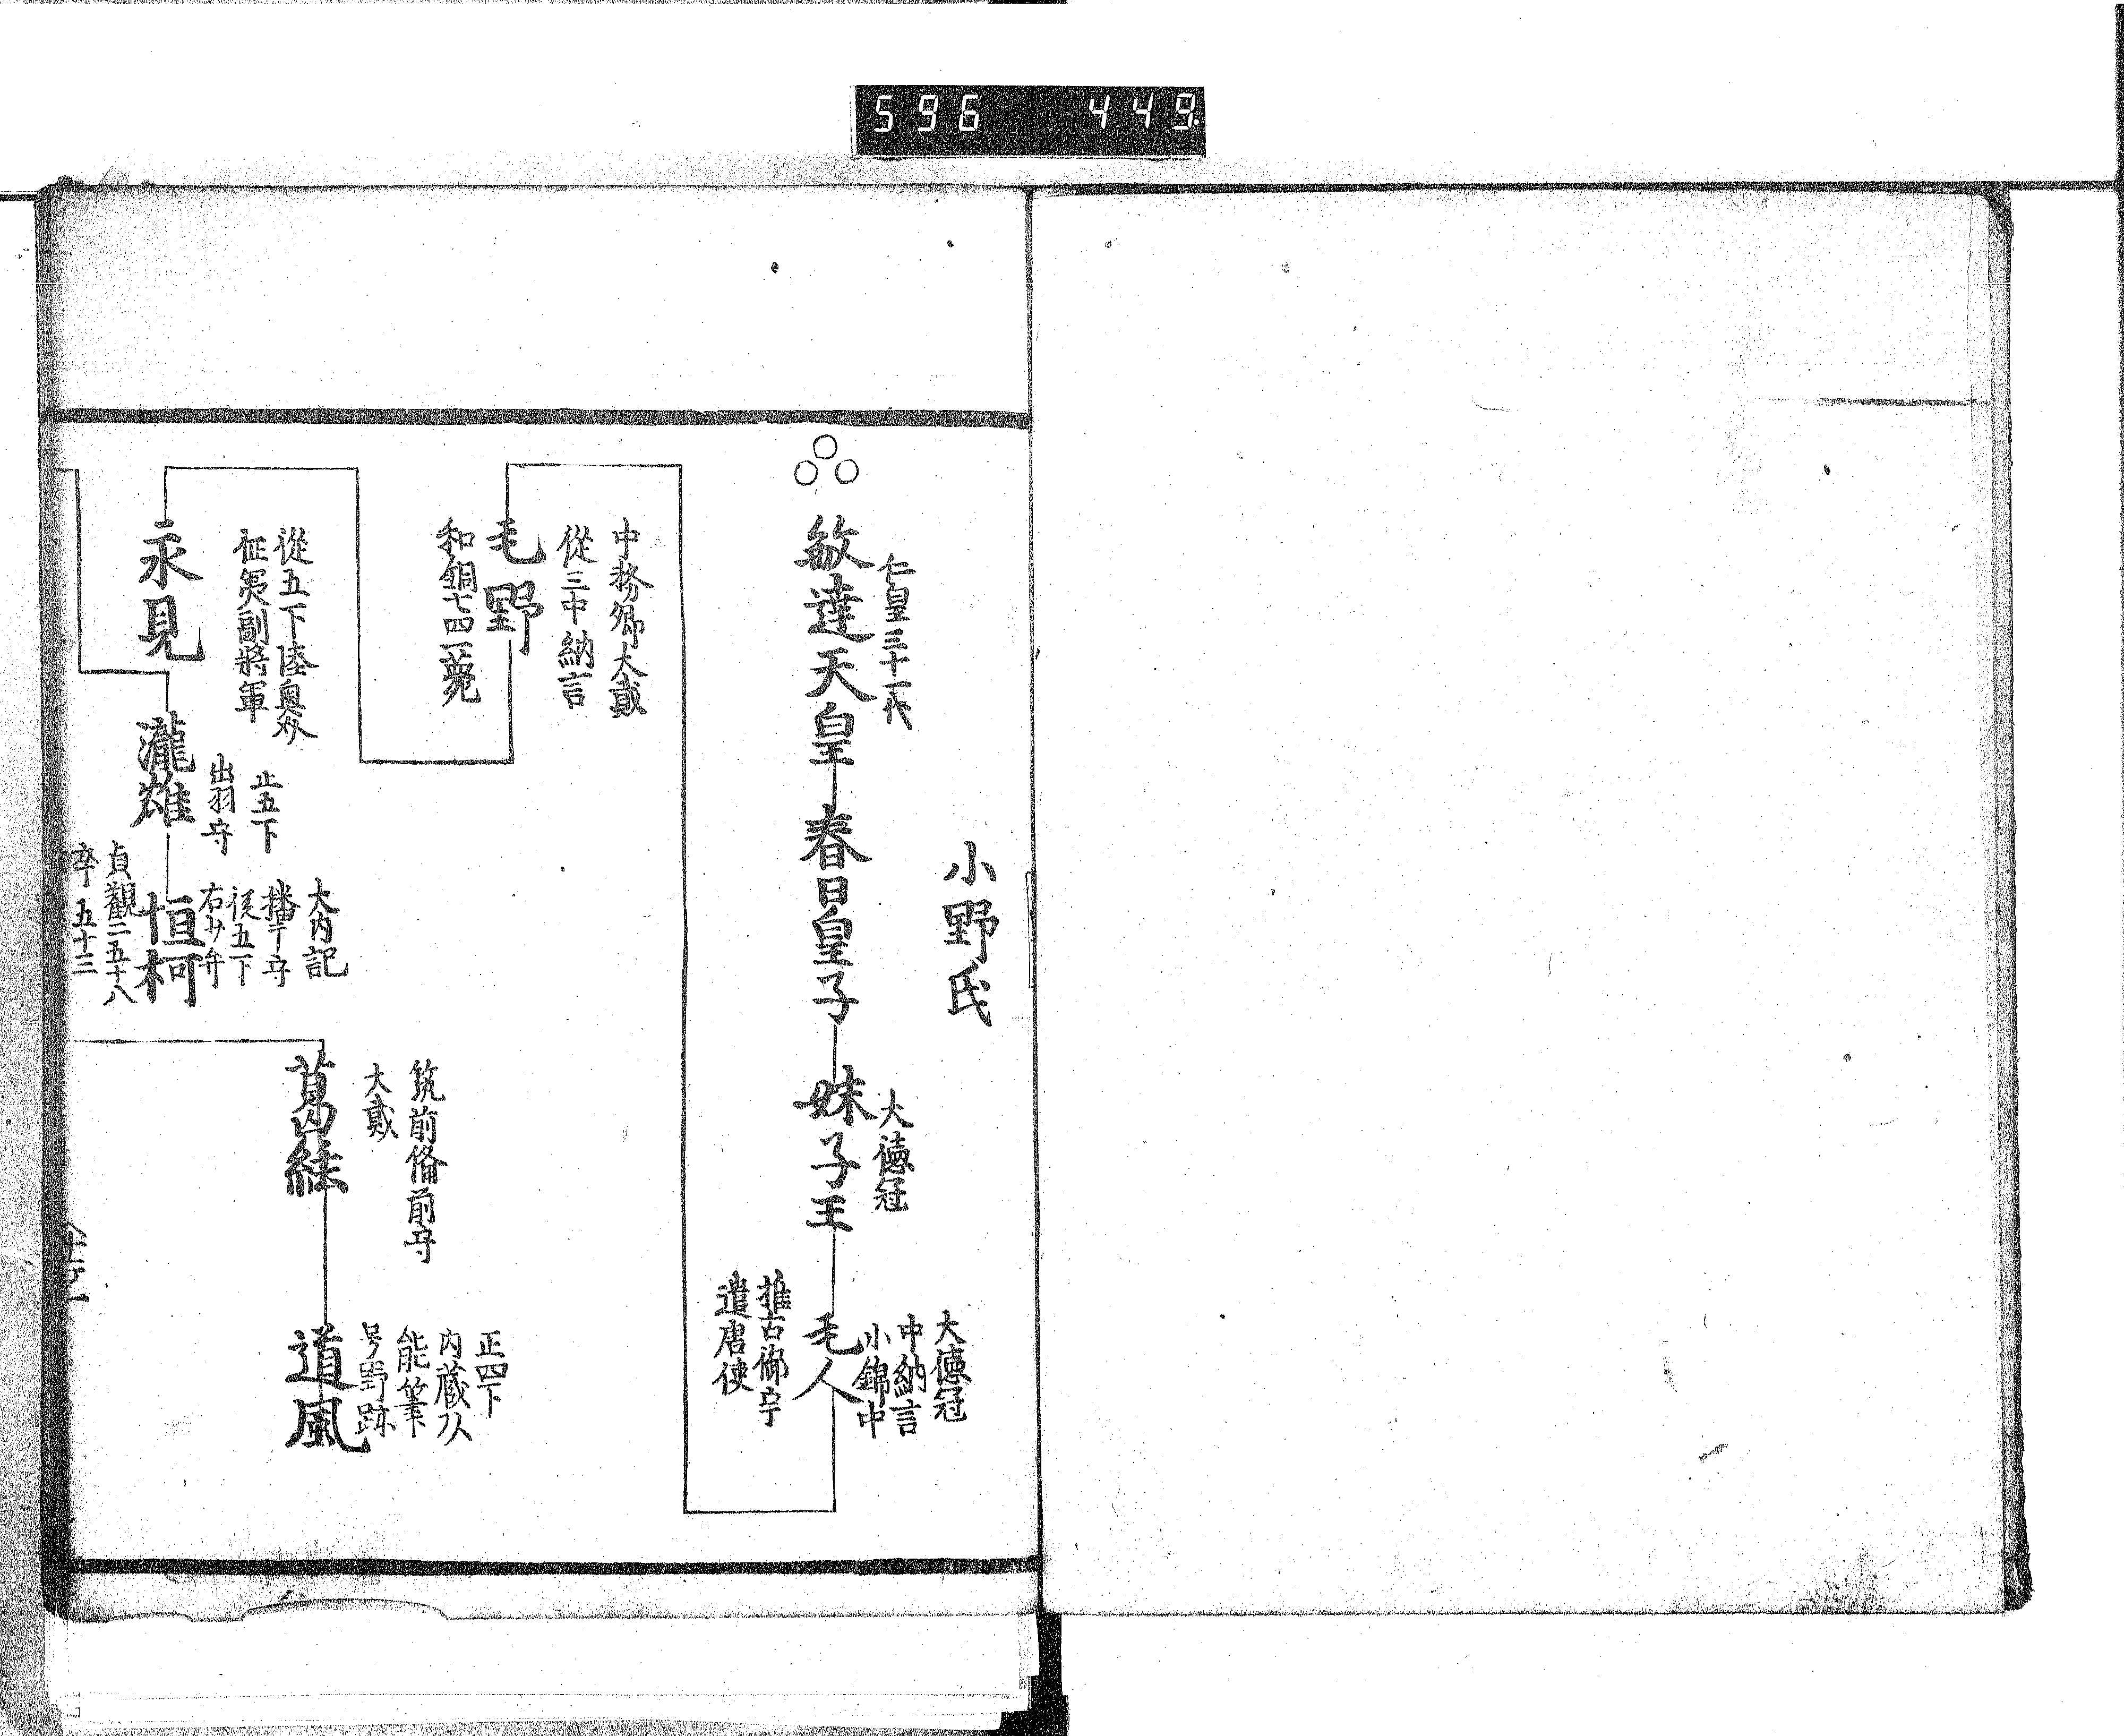 596 449
小野氏
仁皇三十一代
敏達天皇
春日皇子
大德冠
妹子王
大德冠
中納言
小錦中
毛人
推古御宇
遣唐使
中務卿大貳
從三中納言
毛野
和銅七四一薨
從五下陸奥介
征夷副將軍
永見
正五下
出羽守
瀧雄
大内記
播广守
從五下
右少弁
恒柯
貞觀二五十八
卒 五十三
筑前備前守
大貳
葛絃
正四下
内藏
能筆
号野跡
道風